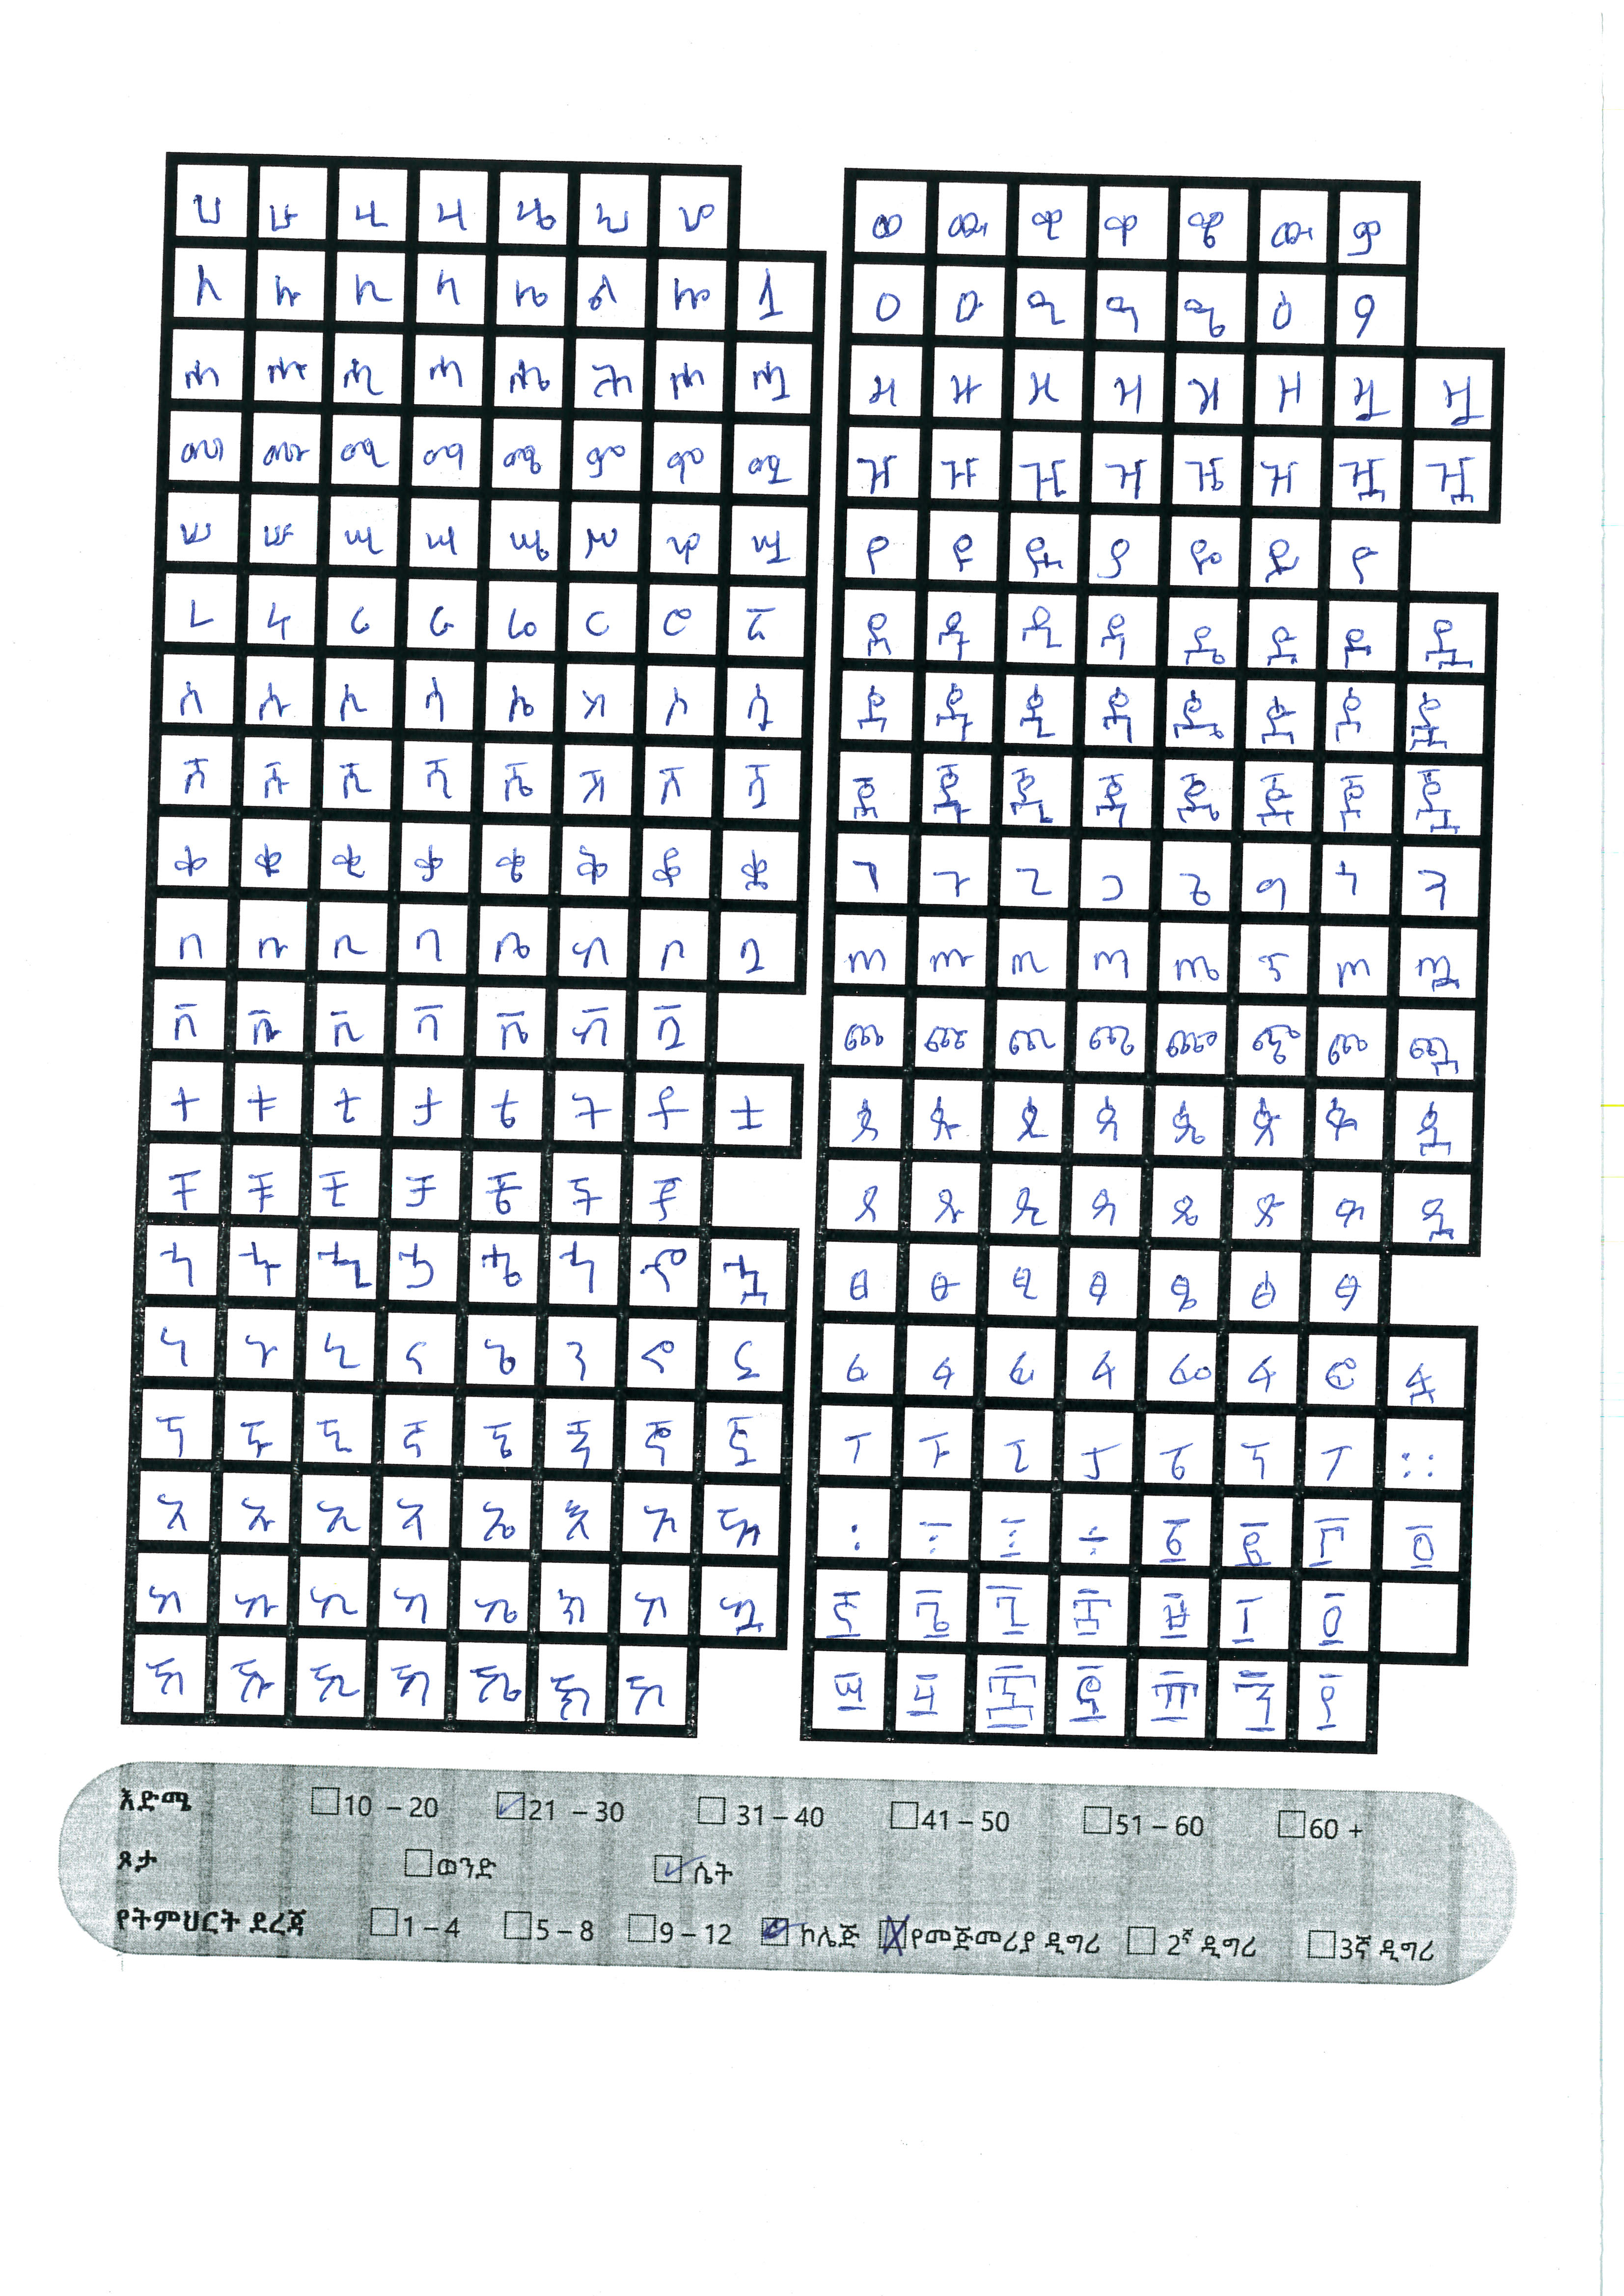 ሀ ሁ ሂ ሃ ሄ ህ ሆ
ለ ሉ ሊ ላ ሌ ል ሎ ሏ
ሐ ሑ ሒ ሓ ሔ ሕ ሖ ሗ
መ ሙ ሚ ማ ሜ ም ሞ ሟ
ሠ ሡ ሢ ሣ ሤ ሥ ሦ ሧ
ረ ሩ ሪ ራ ሬ ር ሮ ሯ
ሰ ሱ ሲ ሳ ሴ ስ ሶ ሷ
ሸ ሹ ሺ ሻ ሼ ሽ ሾ ሿ
ቀ ቁ ቂ ቃ ቄ ቅ ቆ ቋ
በ ቡ ቢ ባ ቤ ብ ቦ ቧ
ቨ ቩ ቪ ቫ ቬ ቭ ቯ
ተ ቱ ቲ ታ ቴ ት ቶ ቷ
ቸ ቹ ቺ ቻ ቼ ች ቾ
ኀ ኁ ኂ ኃ ኄ ኅ ኆ ኋ
ነ ኑ ኒ ና ኔ ን ኖ ኗ
ኘ ኙ ኚ ኛ ኜ ኝ ኞ ኟ
አ ኡ ኢ ኣ ኤ እ ኦ ኧ
ከ ኩ ኪ ካ ኬ ክ ኮ ኳ
ኸ ኹ ኺ ኻ ኼ ኽ ኾ
ወ ዉ ዊ ዋ ዌ ው ዎ
ዐ ዑ ዒ ዓ ዔ ዕ ዖ
ዘ ዙ ዚ ዛ ዜ ዝ ዞ ዟ
ዠ ዡ ዢ ዣ ዤ ዥ ዦ ዧ
የ ዩ ዪ ያ ዬ ይ ዮ
ደ ዱ ዲ ዳ ዴ ድ ዶ ዷ
ዸ ዹ ዺ ዻ ዼ ዽ ዾ ዿ
ጀ ጁ ጂ ጃ ጄ ጅ ጆ ጇ
ገ ጉ ጊ ጋ ጌ ግ ጎ ጓ
ጠ ጡ ጢ ጣ ጤ ጥ ጦ ጧ
ጨ ጩ ጪ ጫ ጬ ጭ ጮ ጯ
ጰ ጱ ጲ ጳ ጴ ጵ ጶ ጷ
ጸ ጹ ጺ ጻ ጼ ጽ ጾ ጿ
ፀ ፁ ፂ ፃ ፄ ፅ ፆ
ፈ ፉ ፊ ፋ ፌ ፍ ፎ ፏ
ፐ ፑ ፒ ፓ ፔ ፕ ፖ ።
፡ ፣ ፤ ÷
እድሜ 10 – 20 21 – 30 31 – 40 41 – 50 51 – 60 60 +
ጾታ ወንድ ሴት
የትምህርት ደረጃ 1 – 4 5 – 8 9 – 12 ኮሌጅ የመጀመሪያ ዲግሪ 2ኛ ዲግሪ 3ኛ ዲግሪ